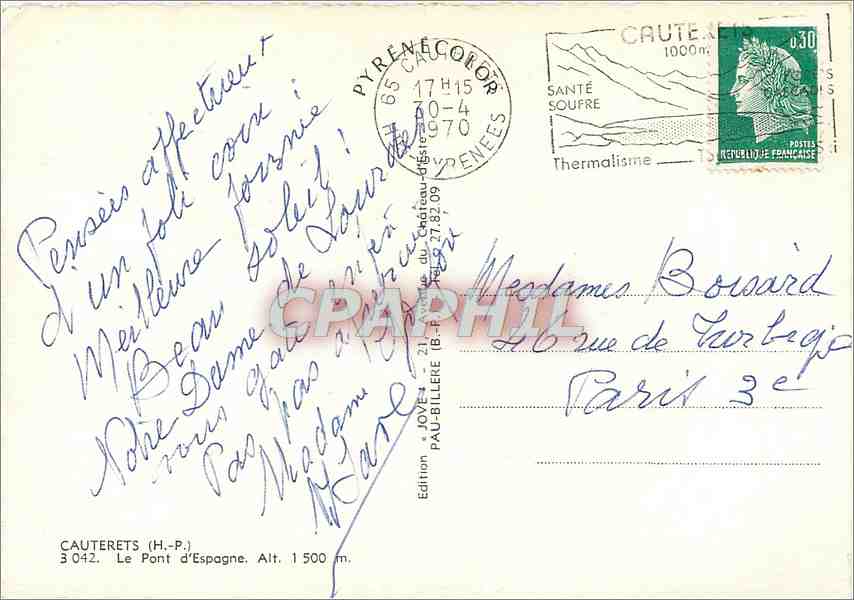 Pensées affectueux
d'un joli coin !
Meilleure journée
Beau soleil !
Notre Dame de Lourdes
vous gate
Pas pas
Madame
CAUTERETS (H.-P.)
3 042. Le Pont d'Espagne. Alt. 1 500 m.
PYRÉNÉCOLOR
Edition « JOVE » - 21, Avenue du Château-d'Este
PAU-BILLERE (B.-P.) - Tél. 27.82.09
65 CAUTERETS
17 H 15
30-4
1970
PYRENEES
CAUTERETS
1000m
SANTÉ
SOUFRE
Thermalisme
0,30
POSTES
REPUBLIQUE FRANÇAISE
Mesdames Boisard
46 rue de Turbigo
Paris 3e
CPAPHIL